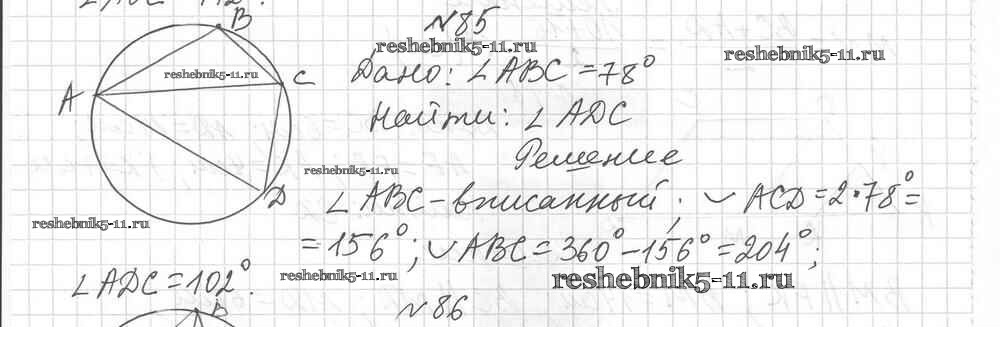 ∠ABC = 112°.
N85
reshebnik5-11.ru
reshebnik5-11.ru
B
reshebnik5-11.ru
Дано: ∠ABC = 78°
C
A
Найти: ∠ADC
Решение
reshebnik5-11.ru
D
∠ABC – вписанный; ◡ ACD = 2·78° =
reshebnik5-11.ru
= 156°; ◡ ABC = 360° – 156° = 204°;
reshebnik5-11.ru
reshebnik5-11.ru
∠ADC = 102°.
N86
B